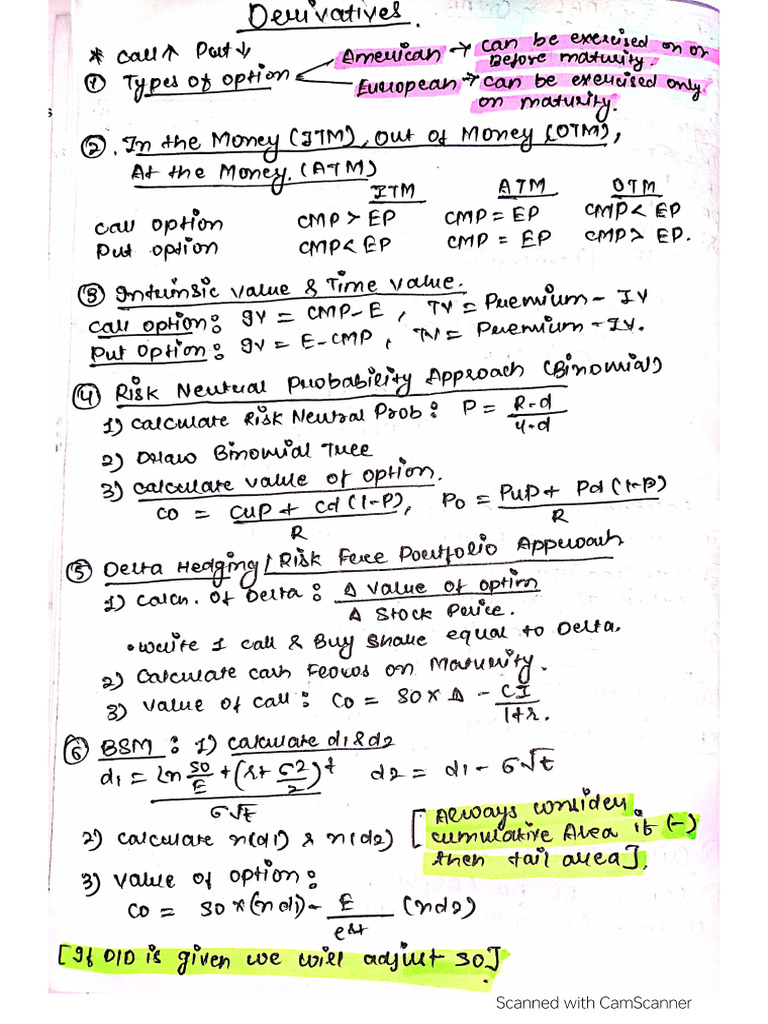 Derivatives.
* Call↑ Put↓
① Types of option
American → can be exercised on or before maturity.
European → can be exercised only on maturity.
②. In the Money (ITM), Out of Money (OTM),
At the Money. (ATM)
ITM ATM OTM
Call option CMP > EP CMP = EP CMP < EP
Put option CMP < EP CMP = EP CMP > EP.
③ Intrinsic value & Time value.
Call option: IV = CMP - E, TV = Premium - IV
Put Option: IV = E - CMP, TV = Premium - IV.
④ Risk Neutral Probability Approach (Binomial)
1) Calculate Risk Neutral Prob: P = R-d / u-d
2) Draw Binomial Tree
3) Calculate value of option.
C0 = CuP + Cd(1-P) / R, P0 = PuP + Pd(1-P) / R
⑤ Delta Hedging / Risk Free Portfolio Approach
1) Calcn. of Delta: Δ value of option / Δ Stock Price.
• Write 1 call & Buy Share equal to Delta.
2) Calculate cash flows on Maturity.
3) Value of call: C0 = S0 × Δ - CI / 1+r.
⑥ BSM: 1) calculate d1 & d2
d1 = ln S0/E + (r + σ2/2)t / σ√t d2 = d1 - σ√t
2) calculate n(d1) & n(d2) [Always consider cumulative Area if (-) then tail area].
3) value of option:
C0 = S0 × (nd1) - E / e^rt (nd2)
[If DID is given we will adjust S0].
Scanned with CamScanner